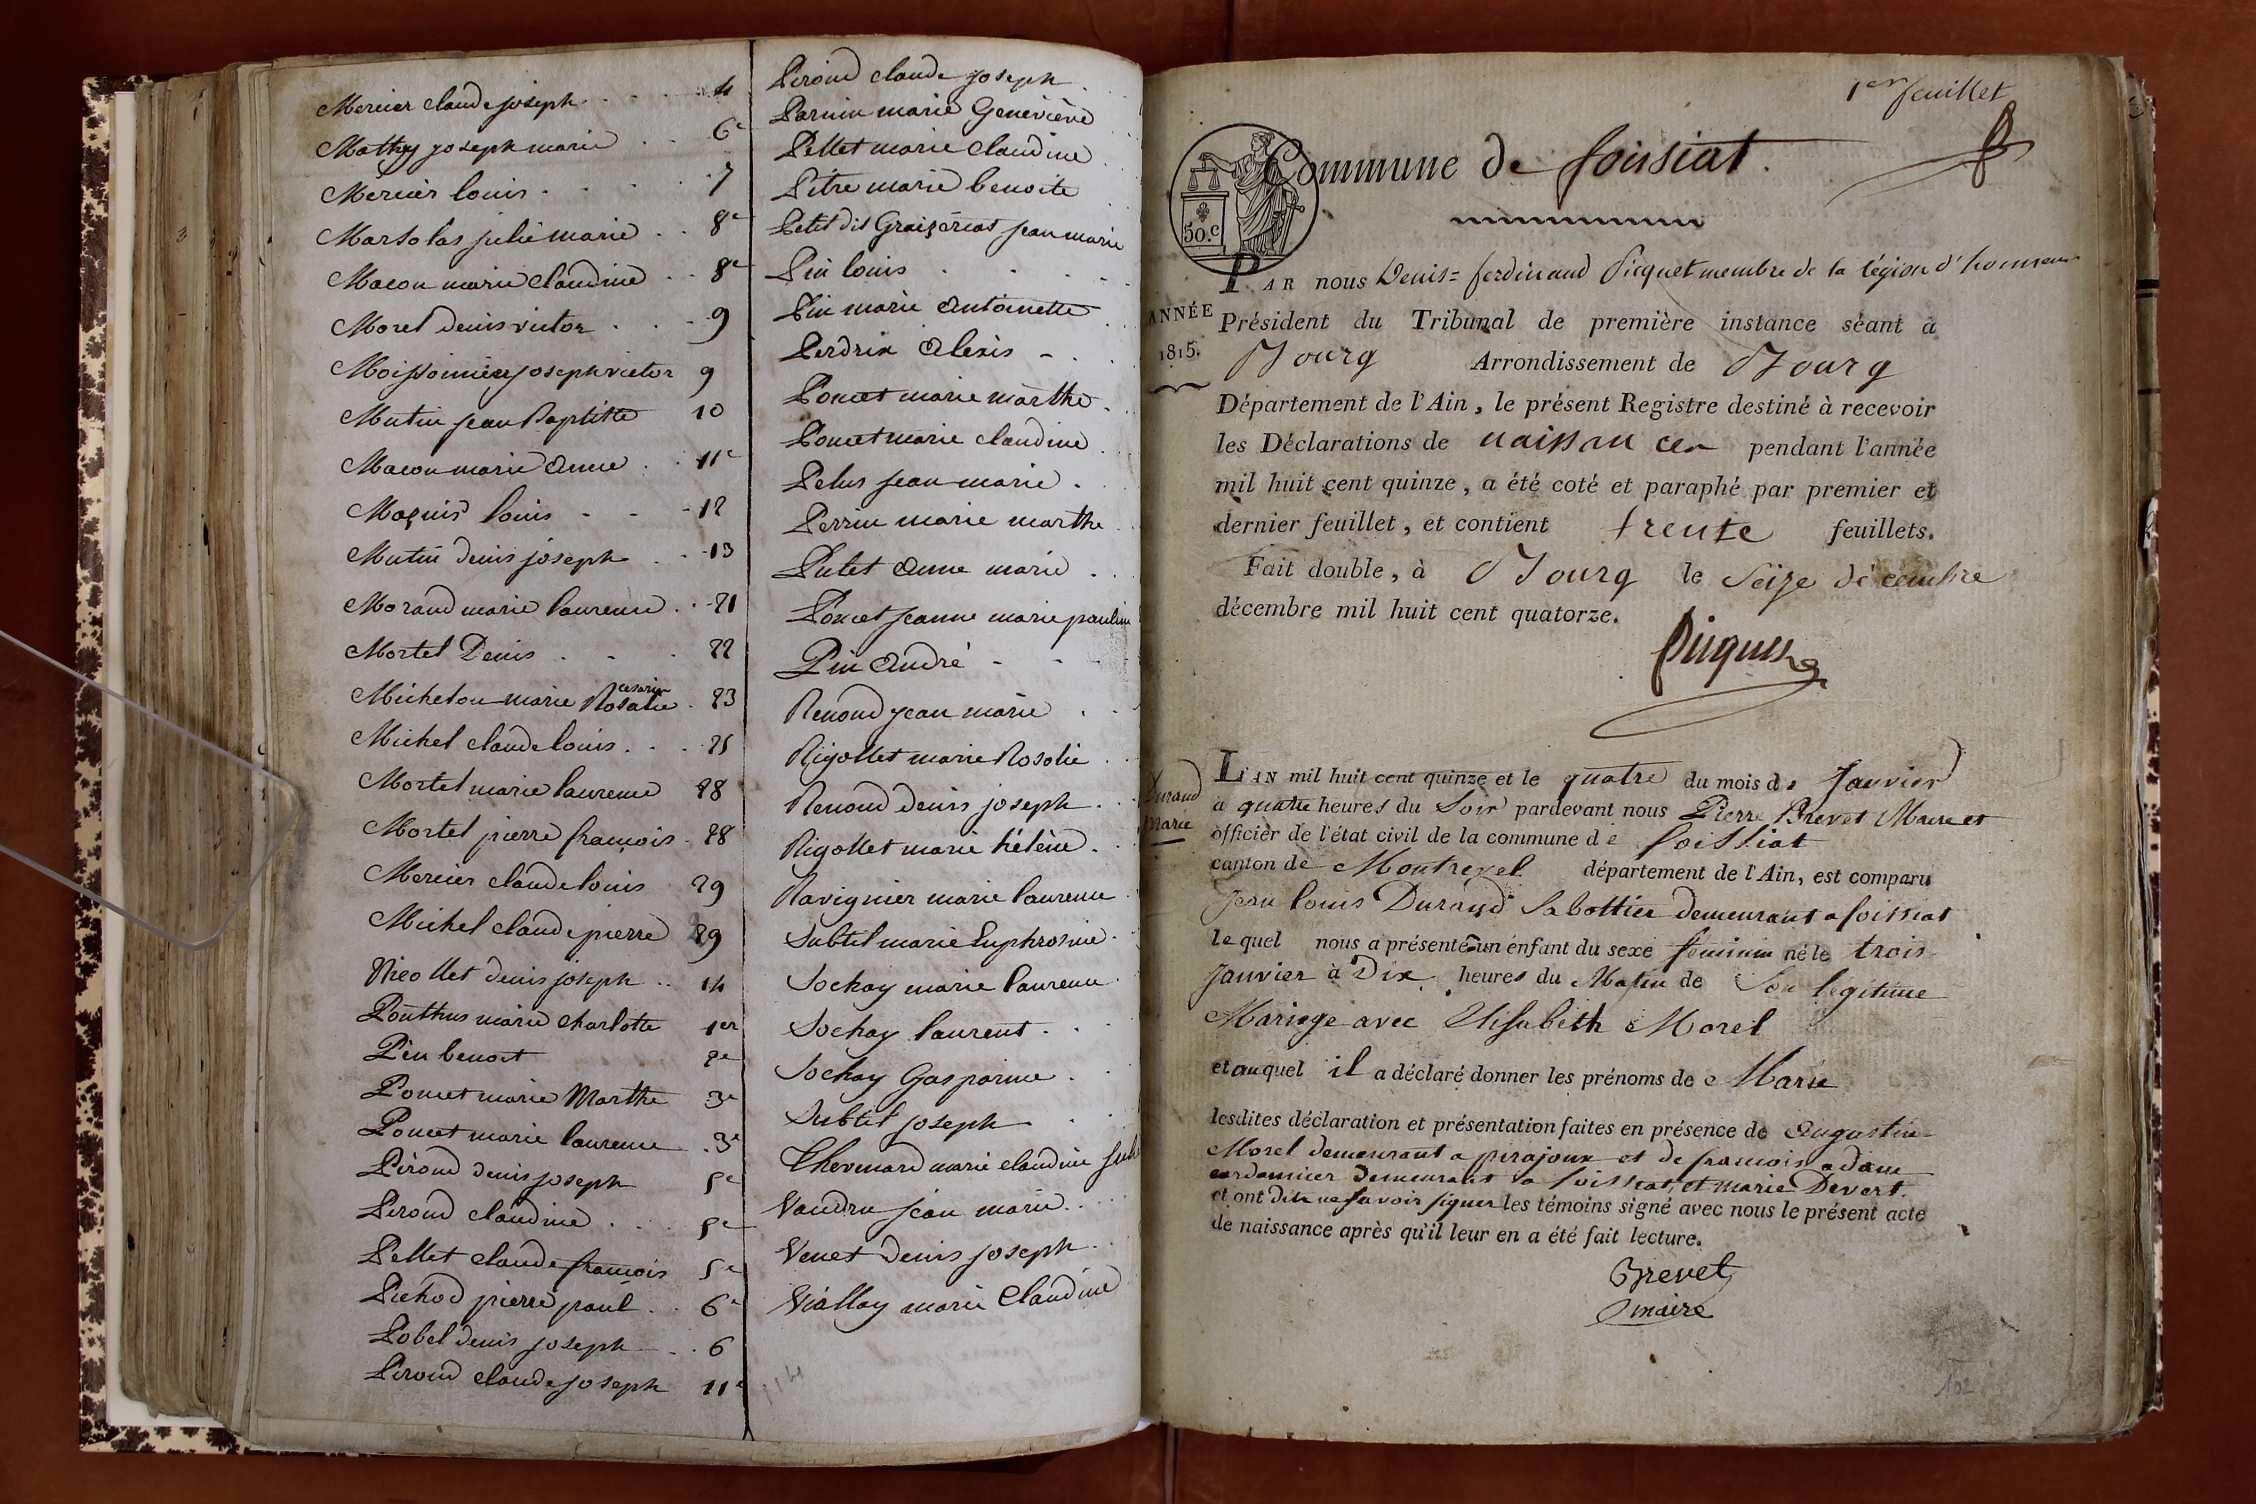 Mercier claude joseph 4
Mathy joseph marie 6e
Mercier louis 7
Marsolas julie marie 8e
Macon marie claudine 8e
Morel denis victor 9
Moissonnier joseph victor 9
Mutin jean Baptiste 10
Macon marie Anne 11e
louis 12
Mutin denis joseph 13
Morand marie laurence 21
Mortel Denis 22
cesarine
Micheton marie Rosalie 23
Michel claude louis 25
Mortel marie laurence 28
Mortel pierre françois 28
Mercier claude louis 29
Michel claude pierre 29
Nicollet denis joseph 14
Ponthus marie charlotte 1er
Pin benoit 2e
Poncet marie Marthe 3e
Poncet marie laurence 3e
Piroud denis joseph 5e
Piroud claudine 5e
Pellet claude françois 5e
Pichod pierre paul 6e
Pobel denis joseph 6
Piroud claude joseph 11e
Piroud claude joseph
marie Geneviève
Pellet marie claudine
Pitre marie benoite
Petit dit jean marie
Pin louis
Pin marie Antoinette
Perdrix Alexis
Poncet marie marthe
Poncet marie claudine
Pelus jean marie
Perrin marie marthe
Putet Anne marie
Poncet jeanne marie pauline
Pin André
Renoud jean marie
Rigollet marie Rosalie
Renoud denis joseph
Rigollet marie hélène
Ravignier marie laurence
Subtil marie Euphrosine
Sochay marie laurence
Sochay laurent
Sochay Gasparine
Subtil joseph
Thevenard marie claudine
Vaudru jean marie
Venet denis joseph
Viallay marie Claudine
1er feuillet
Commune de foissiat.
50.c
PAR nous Denis=ferdinand Picquet membre de la légion d'honneur
ANNÉE
1815.
Président du Tribunal de première instance séant à
Bourg Arrondissement de Bourg
Département de l'Ain, le présent Registre destiné à recevoir
les Déclarations de naissances pendant l'année
mil huit cent quinze, a été coté et paraphé par premier et
dernier feuillet, et contient trente feuillets.
Fait double, à Bourg le Seize décembre
décembre mil huit cent quatorze.
Picquet
Durand
marie
L'AN mil huit cent quinze et le quatre du mois de Janvier
à quatre heures du Soir pardevant nous Pierre Brevet Maire et
officier de l'état civil de la commune de foissiat
canton de Montrevel département de l'Ain, est comparu
Jean louis Durand Sabottier demeurant a foissiat
lequel nous a présenté un enfant du sexe feminin né le trois
Janvier à Dix heures du Matin de Son légitime
Mariage avec Elisabeth Morel
et auquel il a déclaré donner les prénoms de Marie
lesdites déclaration et présentation faites en présence de Augustin
Morel demeurant a pirajoux et de francois adam
cordonnier demeurant a foissiat, et marie Devert.
et ont dit ne savoir signer les témoins signé avec nous le présent acte
de naissance après qu'il leur en a été fait lecture.
Brevet
maire
102